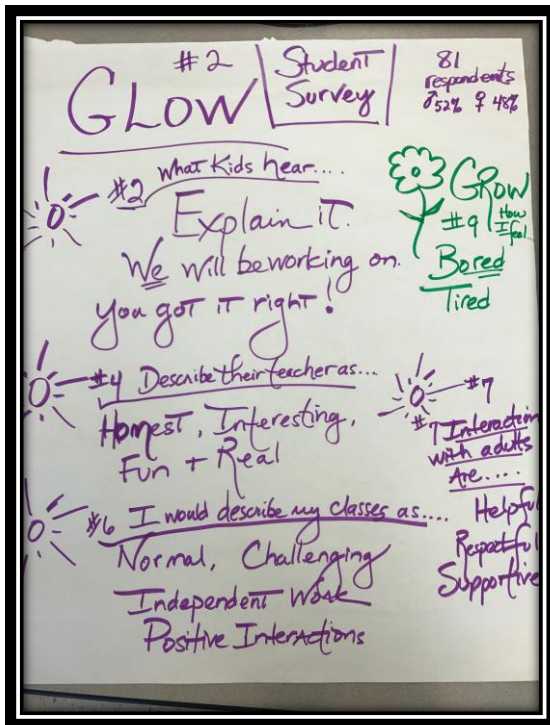 #2
GLOW
Student
Survey
81
respondents
♂52% ♀ 48%
#2 What Kids hear....
Explain it.
We will be working on.
You got it right!
GROW
#9 How
I feel..
Bored
Tired
#4 Describe their teacher as...
Honest, Interesting,
Fun + Real
#7
#7 Interaction
with adults
Are....
Helpful
Respectful
Supportive
#6 I would describe my classes as....
Normal, Challenging
Independent Work
Positive Interactions